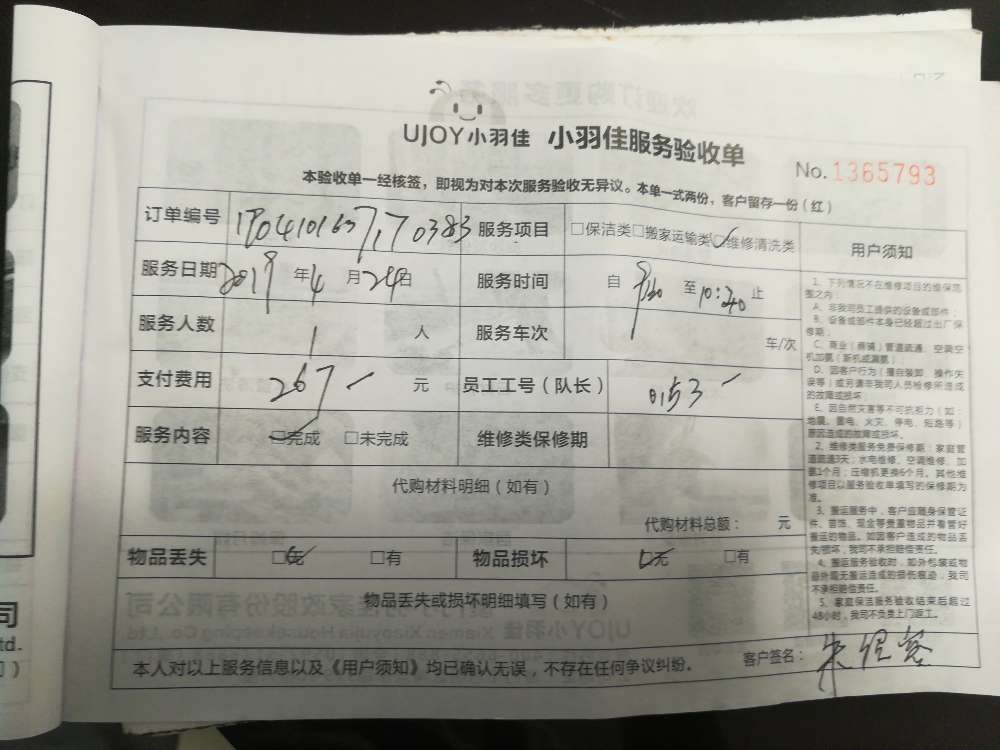 UJOY小羽佳 小羽佳服务验收单
No. 1365793
本验收单一经核签，即视为对本次服务验收无异议。本单一式两份，客户留存一份（红）
订单编号 服务项目 □保洁类□搬家运输类□维修清洗类 用户须知
服务日期 2019年4月24日 服务时间 自 9:30 至 10:30 止
服务人数 1 人 服务车次 1 车/次
支付费用 267 元 员工工号（队长） 0153
服务内容 □完成 □未完成 维修类保修期
代购材料明细（如有）
代购材料总额： 元
物品丢失 □无 □有 物品损坏 □无 □有
物品丢失或损坏明细填写（如有）
本人对以上服务信息以及《用户须知》均已确认无误，不存在任何争议纠纷。 客户签名：
1、下列情况不在维修项目的维保范
围之内：
A、非我司员工提供的设备或部件；
B、设备或部件本身已经超过出厂保
修期；
C、商业（商铺）管道疏通、空调空
机加氨（新机或漏氨）；
D、因客户行为（擅自装卸、操作失
误等）或另请非我司人员检修所造成
的故障或损坏
E、因自然灾害等不可抗拒力（如：
地震、雷电、火灾、停电、短路等）
原因造成的故障或损坏。
2、维修类服务免费保修期：家庭管
道疏通3天；水电维修、空调维修、加
氨1个月；压缩机更换6个月。其他维
修项目以服务验收单填写的保修期为
准。
3、搬运服务中，客户应随身保管证
件、首饰、现金等贵重物品并看管好
搬运的物品。如因客户造成的物品丢
失/损坏，我司不承担赔偿责任。
4、搬运服务验收时，如外包装或物
品外观无搬运造成的损伤痕迹，我司
不承担赔偿责任。
5、家庭保洁服务验收结束后超过
48小时，我司不负责上门返工。
司
td.